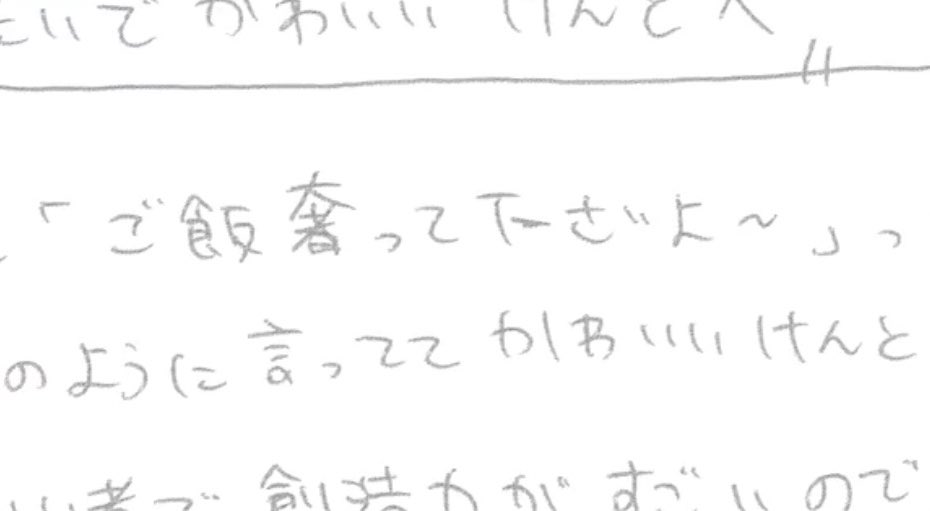 たいでかわいいけんとへ
「ご飯奢って下さいよ～」っ
のように言ってて かわいいけんと
い者で創造力がすごいので